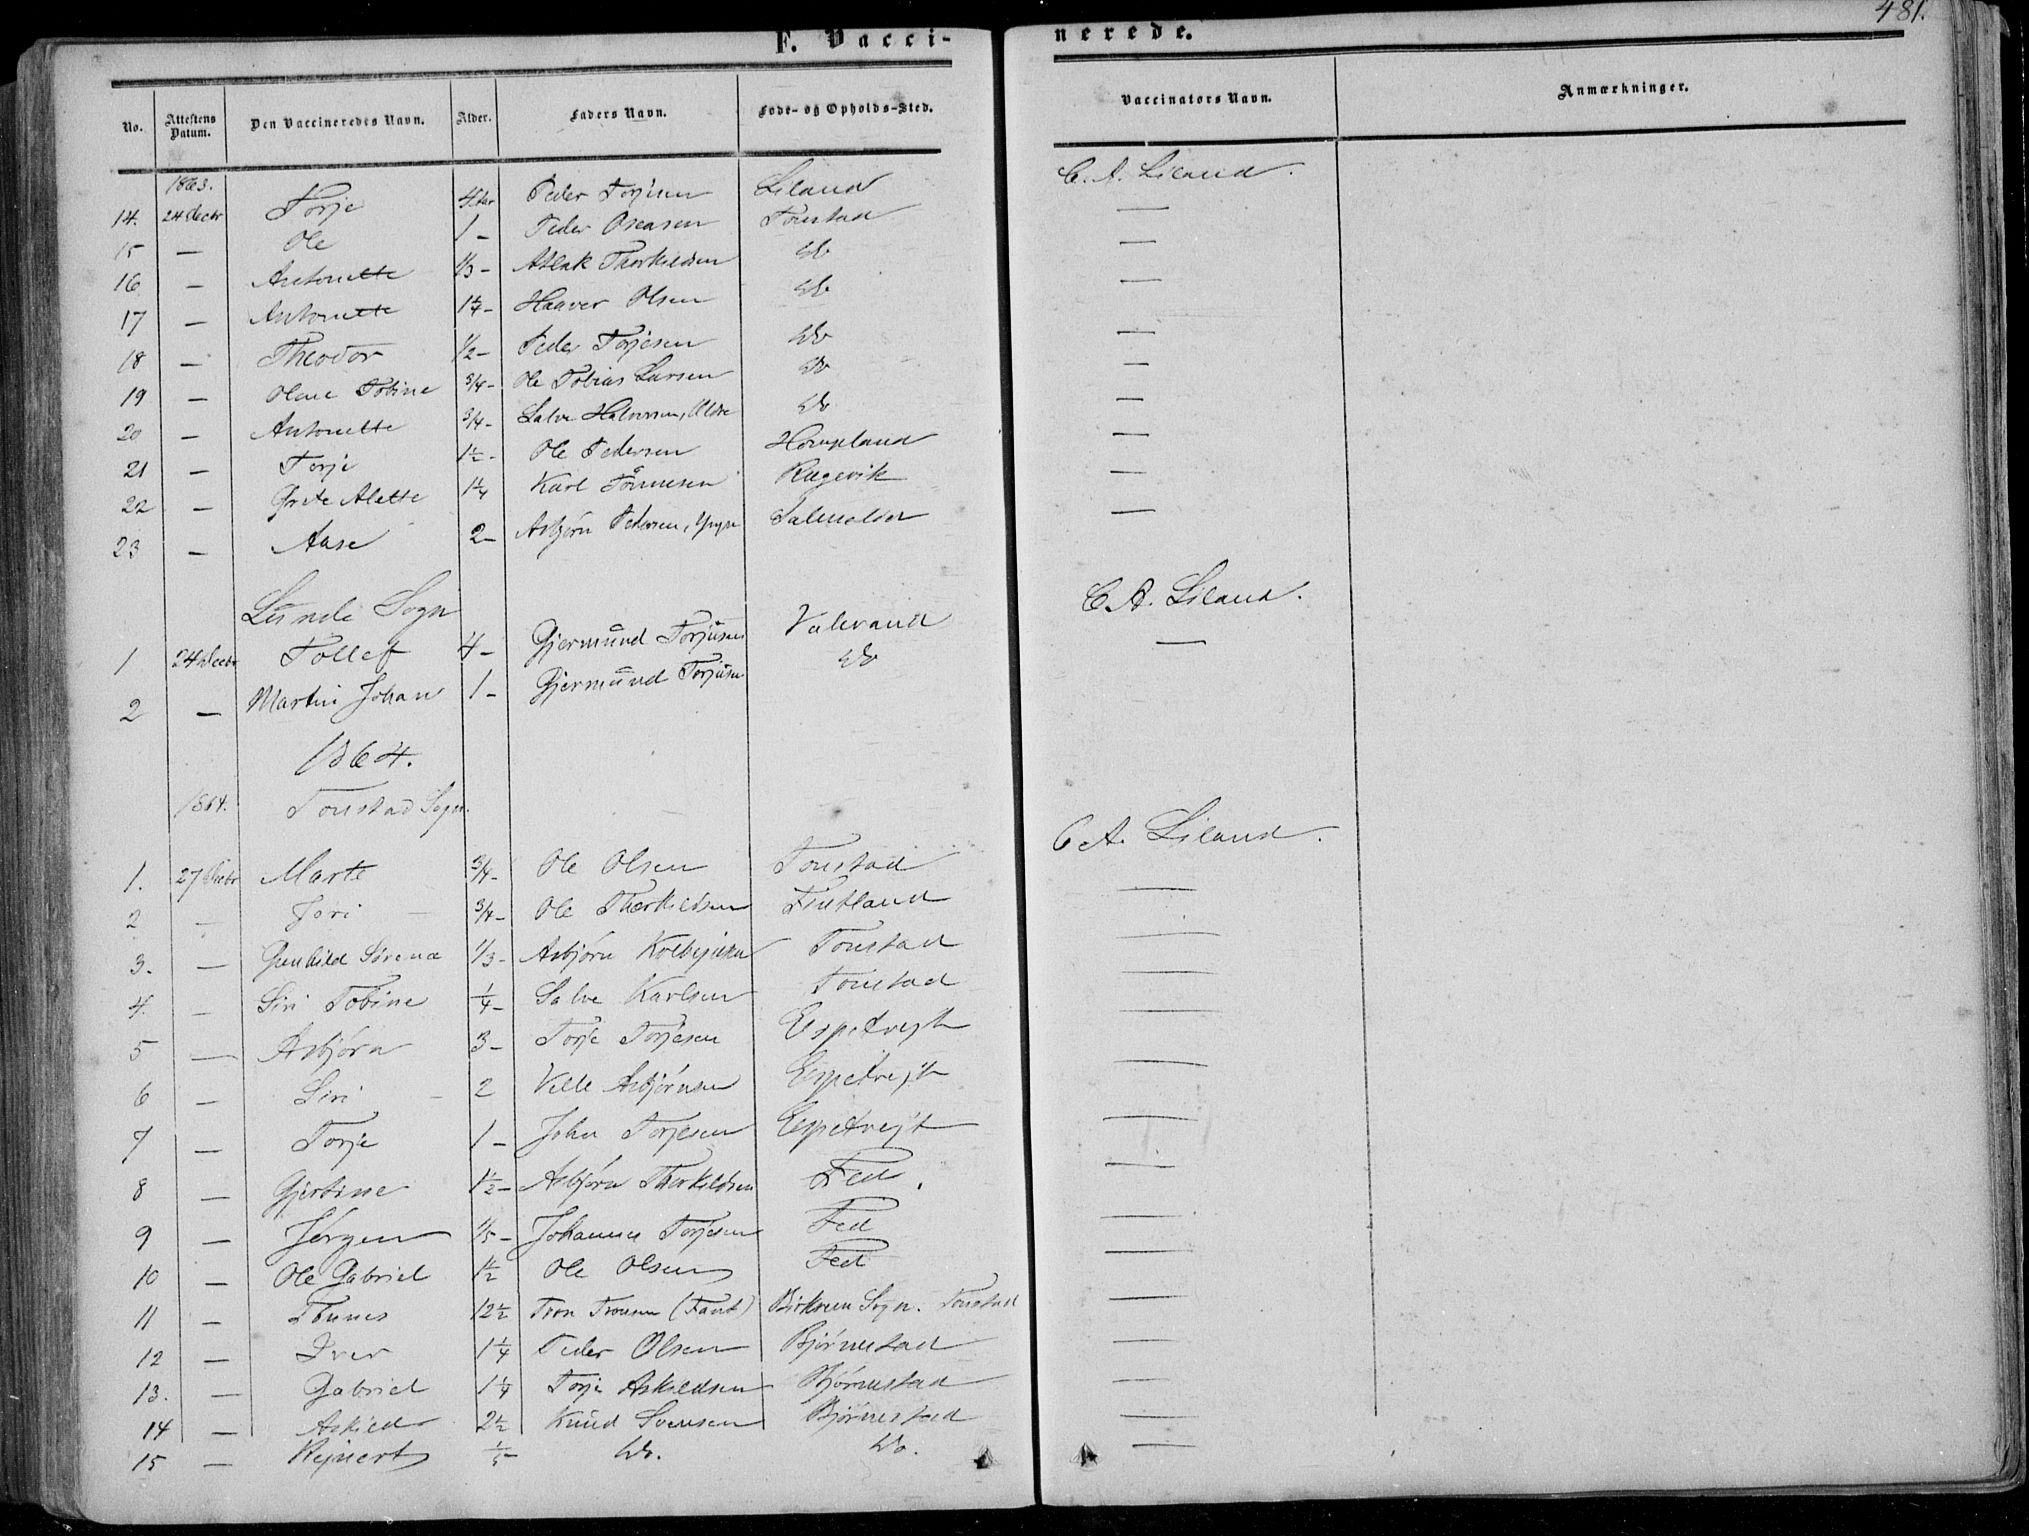 481.
F. Vaccinerede.
No. Attestens Datum. Den Vaccineredes Navn. Alder. Faders Navn. Føde- og Opholds-Sted. Vaccinators Navn. Anmærkninger.
1863.
14. 24 Decbr Torje 4 Aar Peder Torjesen Liland C. A. Liland.
15 — Ole 1 - Peder Oseasen Tonstad —
16 — Antonette 1/3 - Aslak Therkildsen Do —
17 — Antonette 1 1/4 - Haaver Olsen Do —
18 — Theodor 1/2 - Peder Torjesen Do —
19 — Olene Tobine 3/4 - Ole Tobias Larsen Do —
20 — Antonette 3/4 - Salve Halvorsen, Ældre Do —
21 — Torje 1 1/2 - Ole Pedersen Hompland —
22 — Grete Alette 1 1/4 Karl Tønnesen Rægevik —
23 — Aase 2 - Asbjørn Pedersen, Yngre —
Lunde Sogn
1 24 Decbr Tollef 4 - Gjermund Torjusen Valevand C. A. Liland.
2 — Martin Johan 1 - Gjermund Torjusen Do —
1864.
1864. Tonstad Sogn.
1. 27 Decbr Marte 3/4 - Ole Olsen Tonstad C. A. Liland.
2 — Jori 3/4 - Ole Therkildsen Fintland —
3. — Gunhild Sørena 1/3 - Asbjørn Tonstad —
4. — Siri Tobine 1/4 - Salve Karlsen Tonstad —
5 — Asbjørn 3 - Torje Torjesen Espetvejt —
6 — Siri 2 Asbjørnsen Espetvejt —
7 — Torje 1 - John Torjesen Espetvejt —
8 — Gjertine 1 1/2 - Asbjørn Therkildsen Fed. —
9 — Jørgen 1/5 - Johannes Torjesen Fed —
10 — Ole Gabriel 1 1/2 Ole Olsen Fed —
11 — 12 1/2 Tron Tronsen (Fant) Sogn. Tonstad —
12 — Iver 1 1/4 Peder Olsen Bjørnestad —
13. — Gabriel 1 1/4 Torje Askildsen Bjørnestad —
14 — Askild 2 1/2 Knud Svensen Bjørnestad —
15 — Rejnert 1/5 Do. Do. —